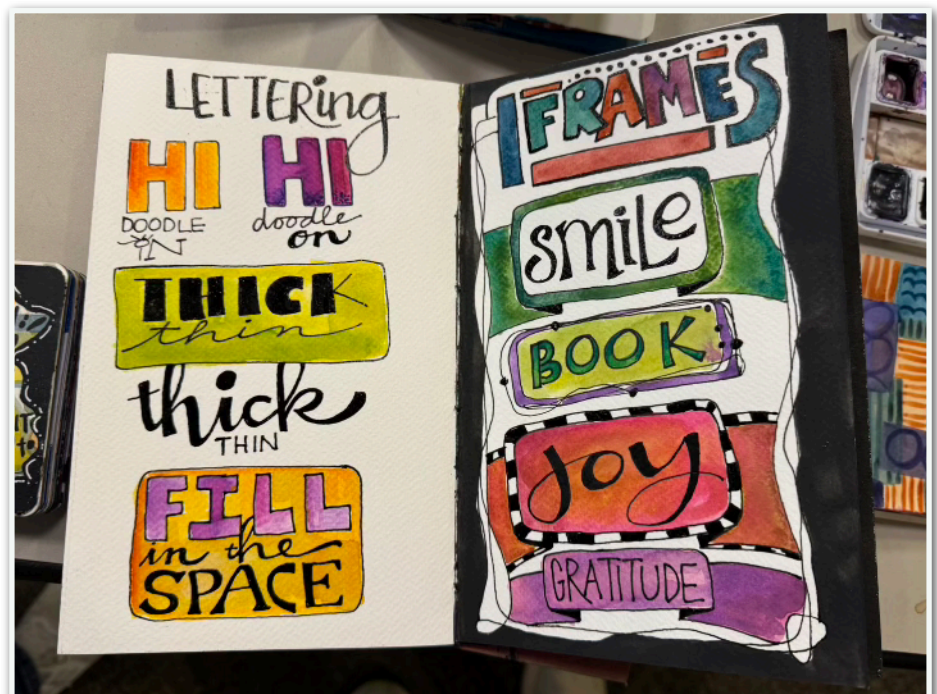 LETTERing
HI HI
DOODLE doodle
IN on
THICK
thin
thick
THIN
FILL
in the
SPACE
FRAMES
smile
BOOK
JOY
GRATITUDE